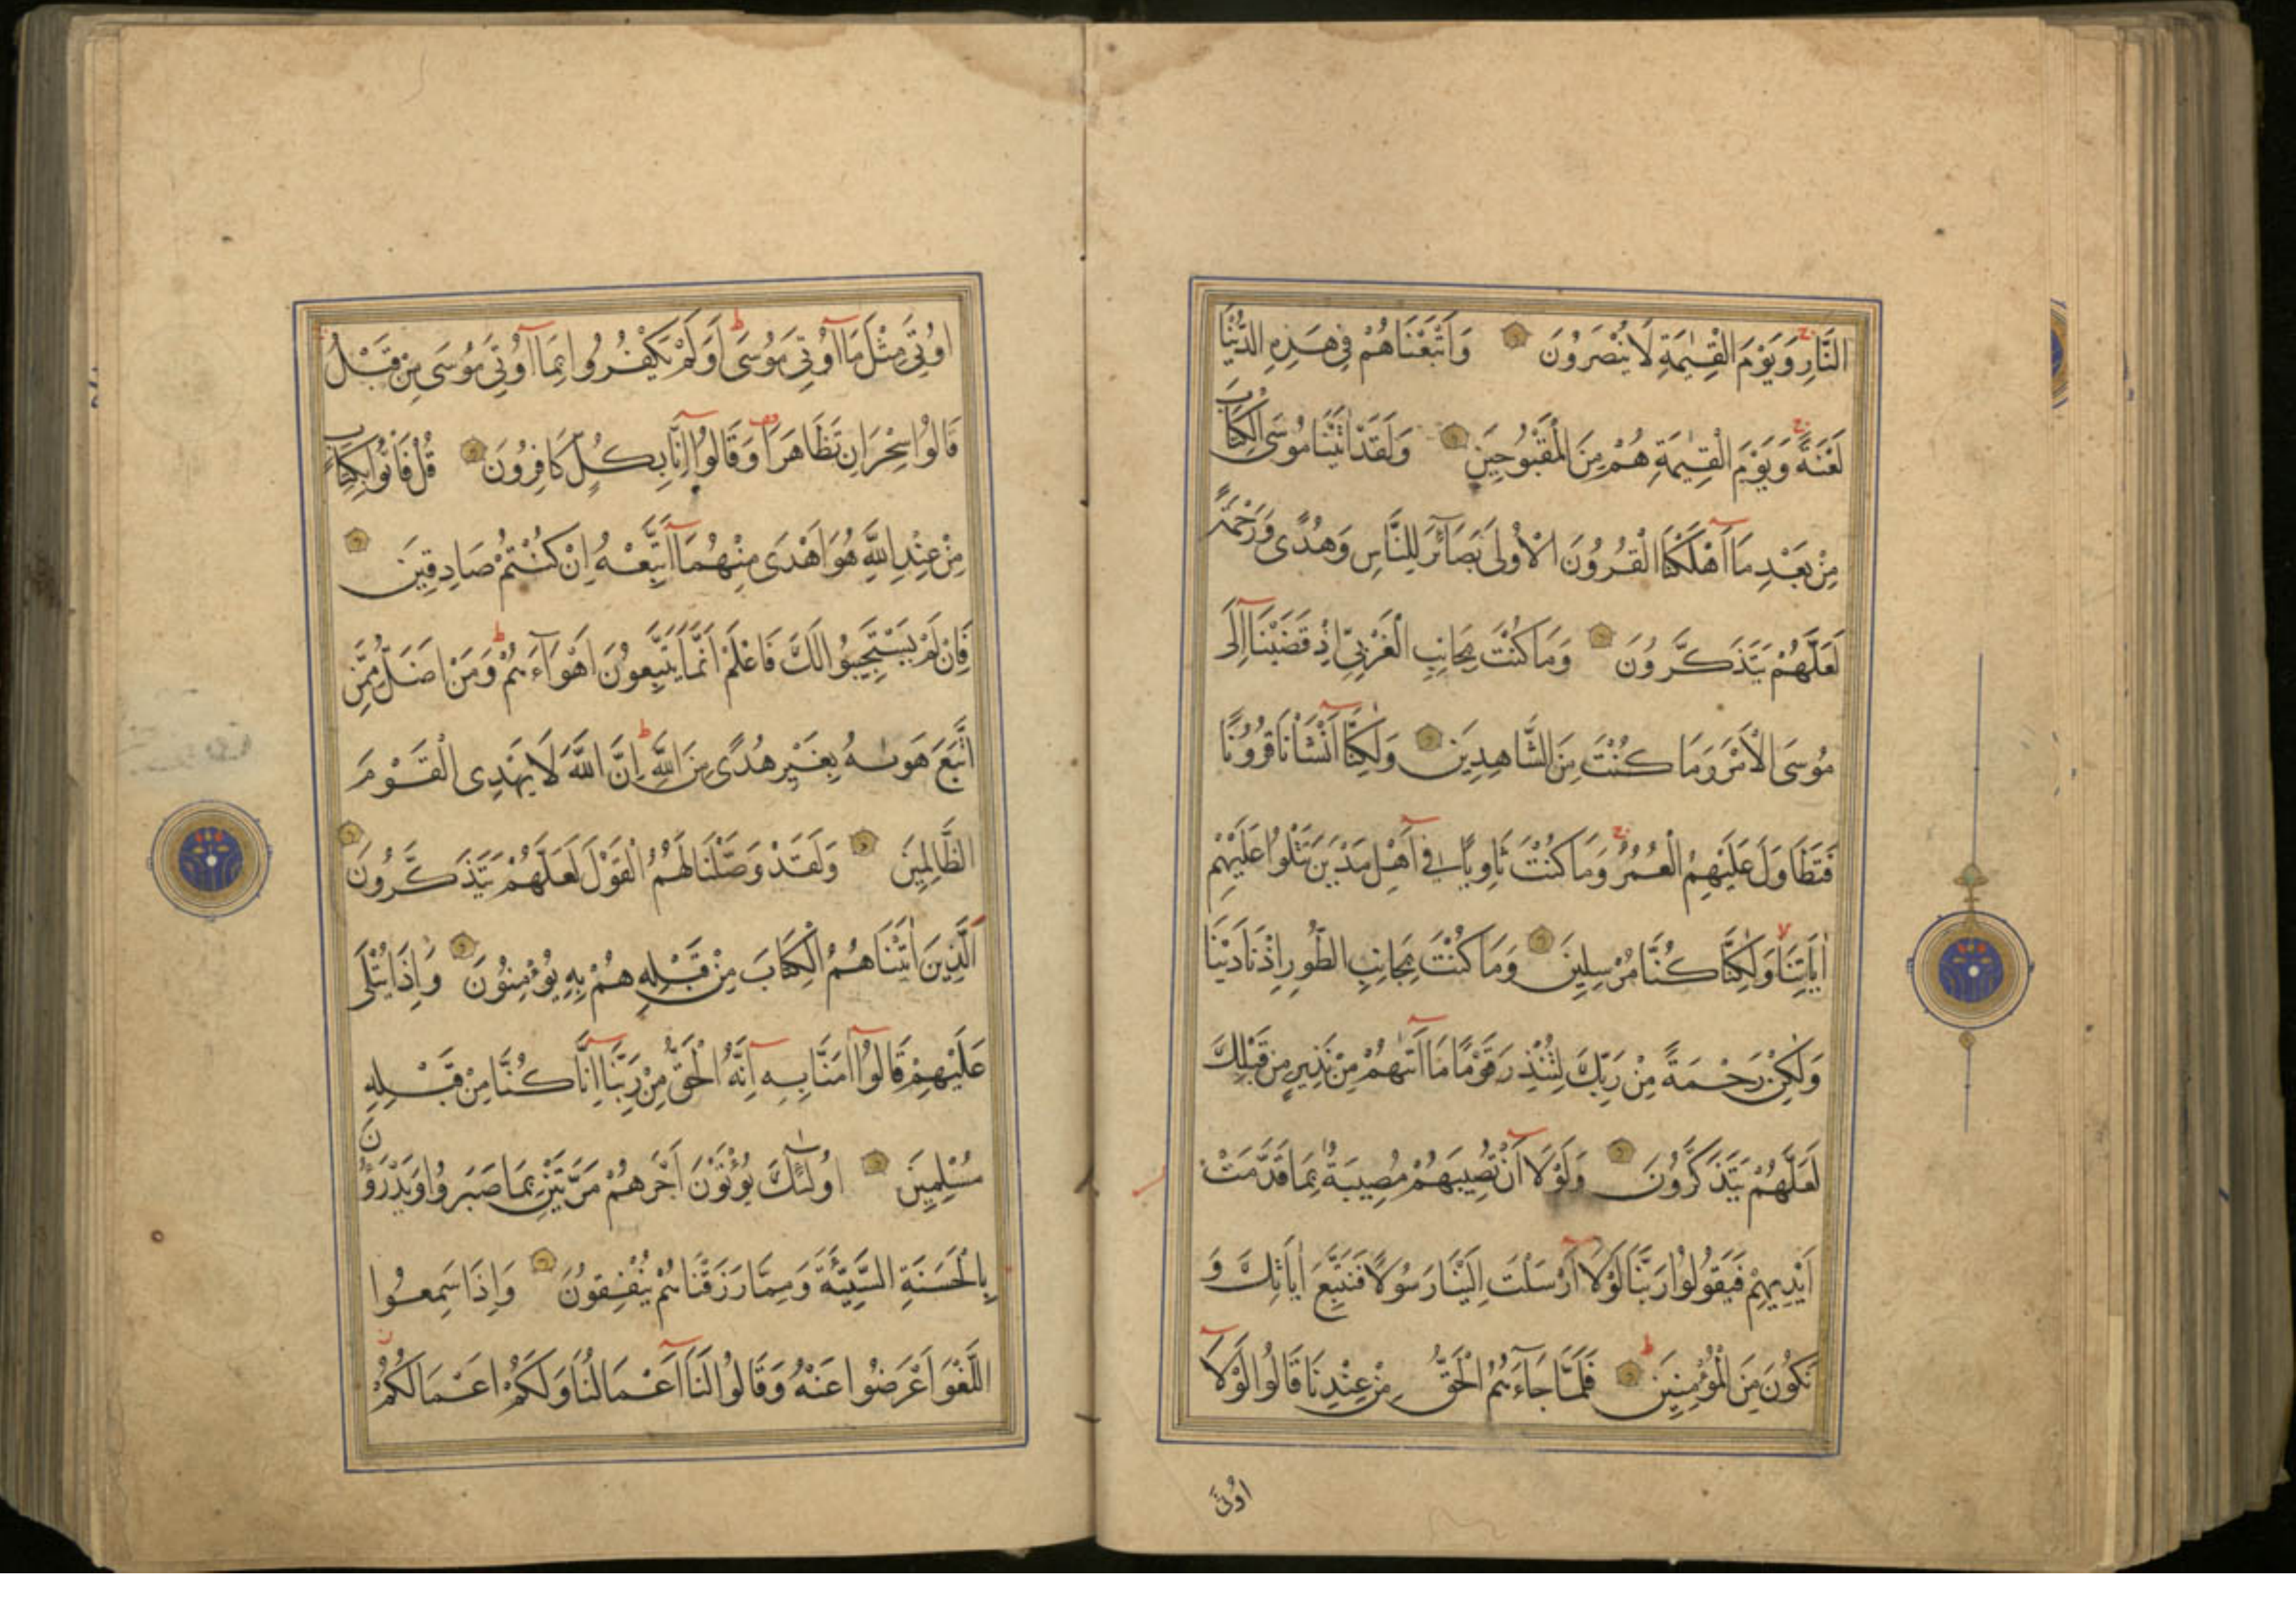 النَّارِ وَيَوْمَ الْقِيٰمَةِ لَا يُنْصَرُونَ وَاَتْبَعْنَاهُمْ فِي هٰذِهِ الدُّنْيَا
لَعْنَةً وَيَوْمَ الْقِيٰمَةِ هُمْ مِنَ الْمَقْبُوحِينَ وَلَقَدْ اٰتَيْنَا مُوسَى الْكِتَابَ
مِنْ بَعْدِ مَا اَهْلَكْنَا الْقُرُونَ الْاُولٰى بَصَائِرَ لِلنَّاسِ وَهُدًى وَرَحْمَةً
لَعَلَّهُمْ يَتَذَكَّرُونَ وَمَا كُنْتَ بِجَانِبِ الْغَرْبِيِّ اِذْ قَضَيْنَا اِلٰى
مُوسَى الْاَمْرَ وَمَا كُنْتَ مِنَ الشَّاهِدِينَ وَلٰكِنَّا اَنْشَاْنَا قُرُونًا
فَتَطَاوَلَ عَلَيْهِمُ الْعُمُرُ وَمَا كُنْتَ ثَاوِيًا فِي اَهْلِ مَدْيَنَ تَتْلُوا عَلَيْهِمْ
اٰيَاتِنَا وَلٰكِنَّا كُنَّا مُرْسِلِينَ وَمَا كُنْتَ بِجَانِبِ الطُّورِ اِذْ نَادَيْنَا
وَلٰكِنْ رَحْمَةً مِنْ رَبِّكَ لِتُنْذِرَ قَوْمًا مَا اَتٰىهُمْ مِنْ نَذِيرٍ مِنْ قَبْلِكَ
لَعَلَّهُمْ يَتَذَكَّرُونَ وَلَوْلَا اَنْ تُصِيبَهُمْ مُصِيبَةٌ بِمَا قَدَّمَتْ
اَيْدِيهِمْ فَيَقُولُوا رَبَّنَا لَوْلَا اَرْسَلْتَ اِلَيْنَا رَسُولًا فَنَتَّبِعَ اٰيَاتِكَ وَ
نَكُونَ مِنَ الْمُؤْمِنِينَ فَلَمَّا جَاءَهُمُ الْحَقُّ مِنْ عِنْدِنَا قَالُوا لَوْلَا
اُوتِيَ
اُوتِيَ مِثْلَ مَا اُوتِيَ مُوسٰى اَوَلَمْ يَكْفُرُوا بِمَا اُوتِيَ مُوسٰى مِنْ قَبْلُ
قَالُوا سِحْرَانِ تَظَاهَرَا وَقَالُوا اِنَّا بِكُلٍّ كَافِرُونَ قُلْ فَاْتُوا بِكِتَابٍ
مِنْ عِنْدِ اللّٰهِ هُوَ اَهْدٰى مِنْهُمَا اَتَّبِعْهُ اِنْ كُنْتُمْ صَادِقِينَ
فَاِنْ لَمْ يَسْتَجِيبُوا لَكَ فَاعْلَمْ اَنَّمَا يَتَّبِعُونَ اَهْوَاءَهُمْ وَمَنْ اَضَلُّ مِمَّنِ
اتَّبَعَ هَوٰىهُ بِغَيْرِ هُدًى مِنَ اللّٰهِ اِنَّ اللّٰهَ لَا يَهْدِى الْقَوْمَ
الظَّالِمِينَ وَلَقَدْ وَصَّلْنَا لَهُمُ الْقَوْلَ لَعَلَّهُمْ يَتَذَكَّرُونَ
اَلَّذِينَ اٰتَيْنَاهُمُ الْكِتَابَ مِنْ قَبْلِهِ هُمْ بِهِ يُؤْمِنُونَ وَاِذَا يُتْلٰى
عَلَيْهِمْ قَالُوا اٰمَنَّا بِهِ اِنَّهُ الْحَقُّ مِنْ رَبِّنَا اِنَّا كُنَّا مِنْ قَبْلِهِ
مُسْلِمِينَ اُولٰئِكَ يُؤْتَوْنَ اَجْرَهُمْ مَرَّتَيْنِ بِمَا صَبَرُوا وَيَدْرَؤُنَ
بِالْحَسَنَةِ السَّيِّئَةَ وَمِمَّا رَزَقْنَاهُمْ يُنْفِقُونَ وَاِذَا سَمِعُوا
اللَّغْوَ اَعْرَضُوا عَنْهُ وَقَالُوا لَنَا اَعْمَالُنَا وَلَكُمْ اَعْمَالُكُمْ